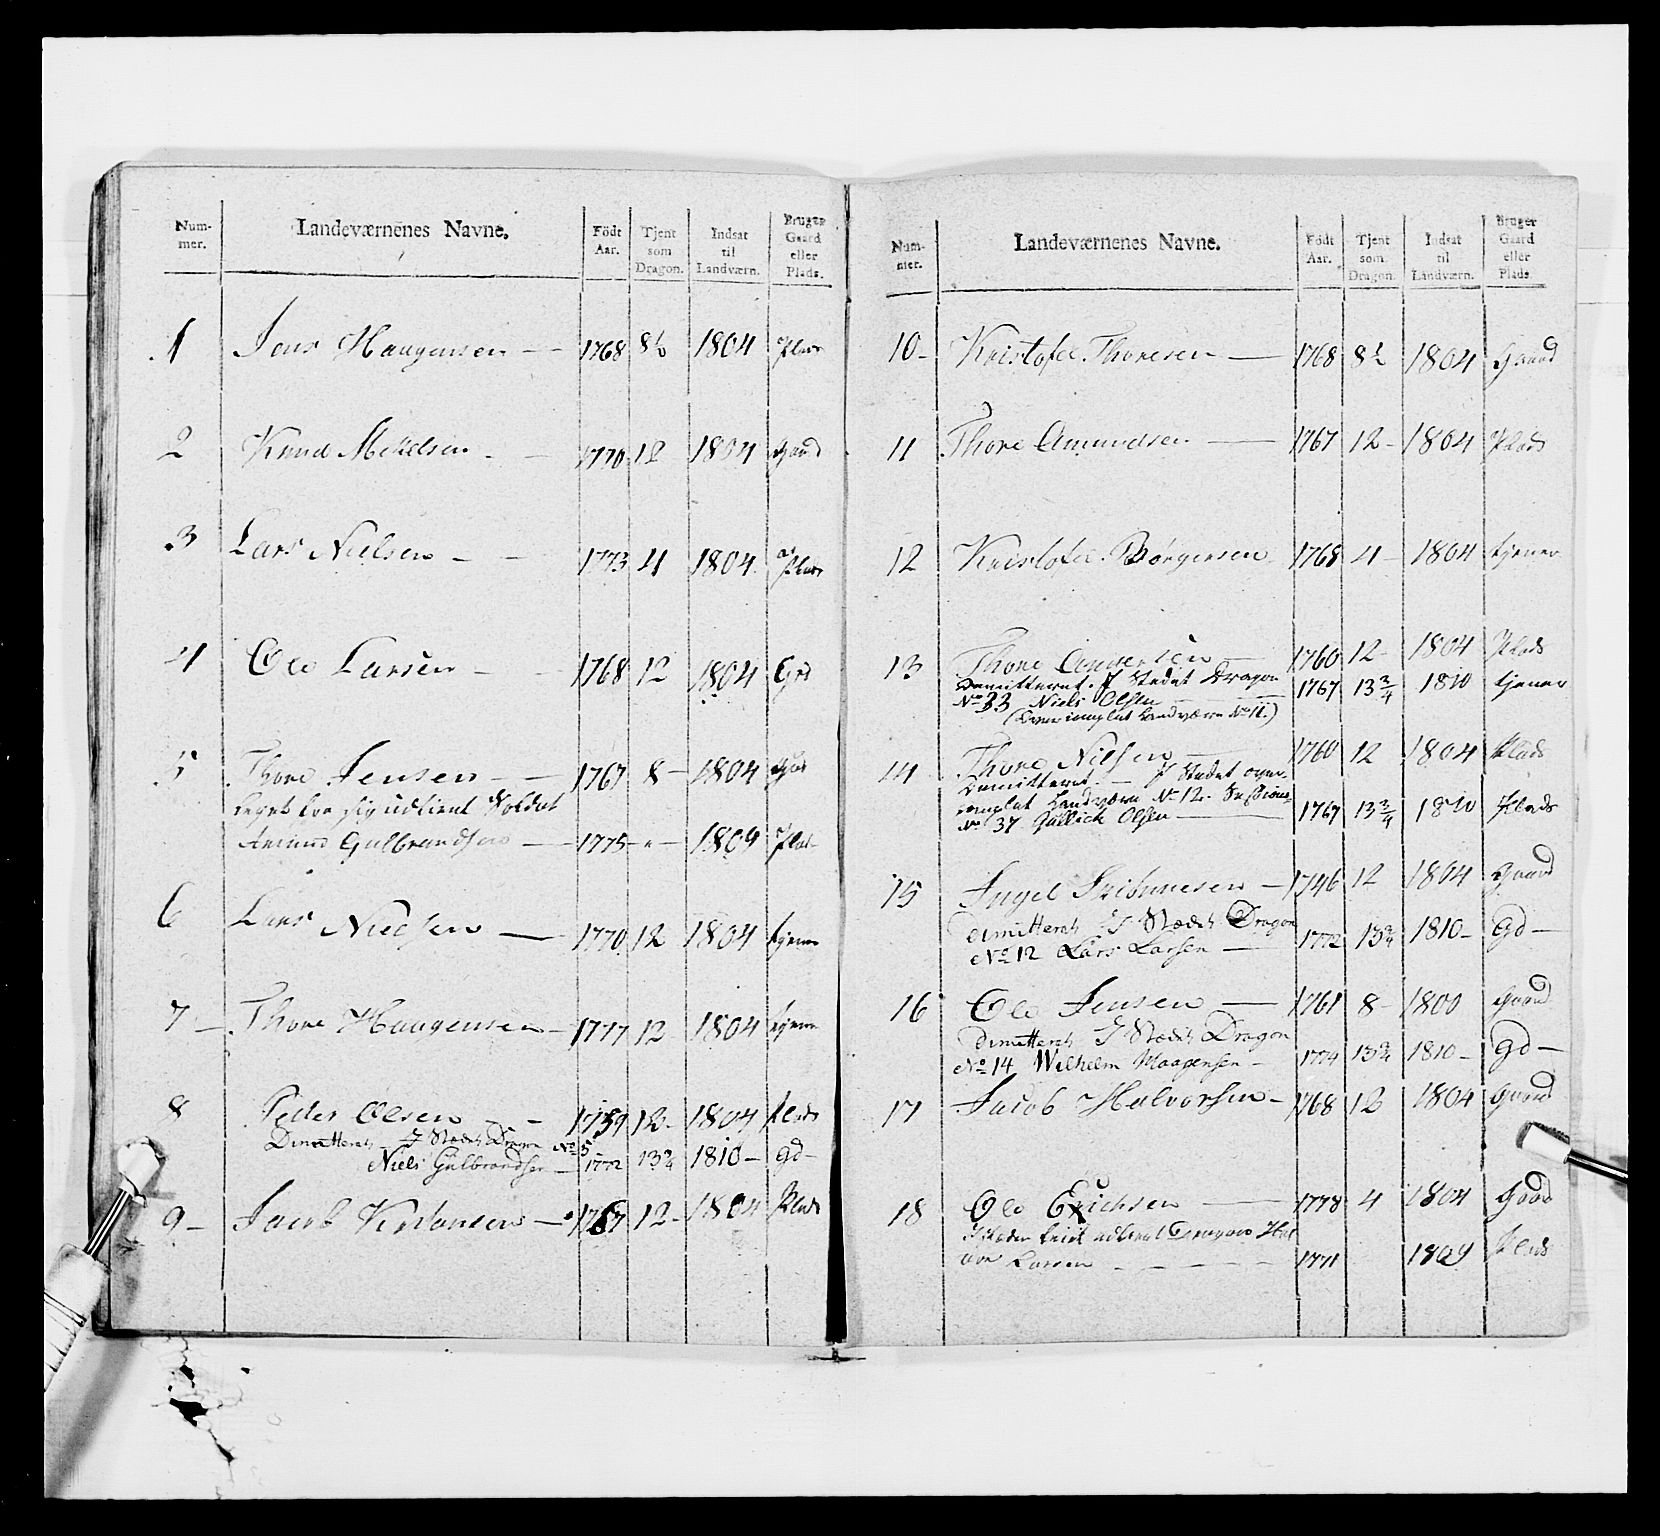 Num-
mer.
Landeværnenes Navne.
Födt
Aar.
Tjent
som
Dragon.
Indsat
til
Landværn.
Bruger
Gaard
eller
Plads.
1 Jens Haagensen 1768 8½ 1804 Plads
2 Knud Mikelsen 1770 12 1804 Gaard
3 Lars Nielsen 1773 4 1804 Plads
4 Ole Larsen 1768 12 1804 Grd
5 Thore Jensen 1767 8 1804
sig udtient Soldat
Amund Gulbrandsen 1775 " 1809 Plads
6 Lars Nielsen 1770 12 1804 tjener
7 Thore Haagensen 1777 12 1804 tjener
8 Peder Olsen 1759 12 1804 Plads
Dimitteret I Stædet Dragon No 5
Niels Gulbrandsen 1772 13¾ 1810 Gd
9 Jacob 1767 12 1804 Plads
Num-
mer.
Landeværnenes Navne.
Födt
Aar.
Tjent
som
Dragon.
Indsat
til
Landværn.
Bruger
Gaard
eller
Plads.
10 Kristofer Thoresen 1768 8½ 1804 Gaard
11 Thore Amundsen 1767 12 1804 Plads
12 Kristofer Børgersen 1768 4 1804 tjener
13 Thore Andersen 1760 12 1804 Plads
Demitteret. I Stedet Dragon 1767 13¾ 1810 tjener
No 33 Niels Olsen
(Overcomplet Landværn No 11.)
14 Thore Nilsen 1760 12 1804 Plads
Demitteret. I Stedet over-
complet Landværn No 12. Sessions-
No 37 Gullick Olsen 1767 13¾ 1810 Plads
15 Ingel 1746 12 1804 Gaard
dimitteret I Stædet Dragon
No 12 Lars Larsen 1772 13¾ 1810 Gd
16 Ole Jensen 1761 8 1800 Gaard
dimitteret I Stædet Dragon
No 14 Wilhelm Haagensen 1774 13¾ 1810 Gd
17 Jacob Halvorsen 1768 12 1804 Gaard
18 Ole Erichsen 1778 4 1804 Gaard
Dragon Hal
vor Larsen 1771 1809 Plads